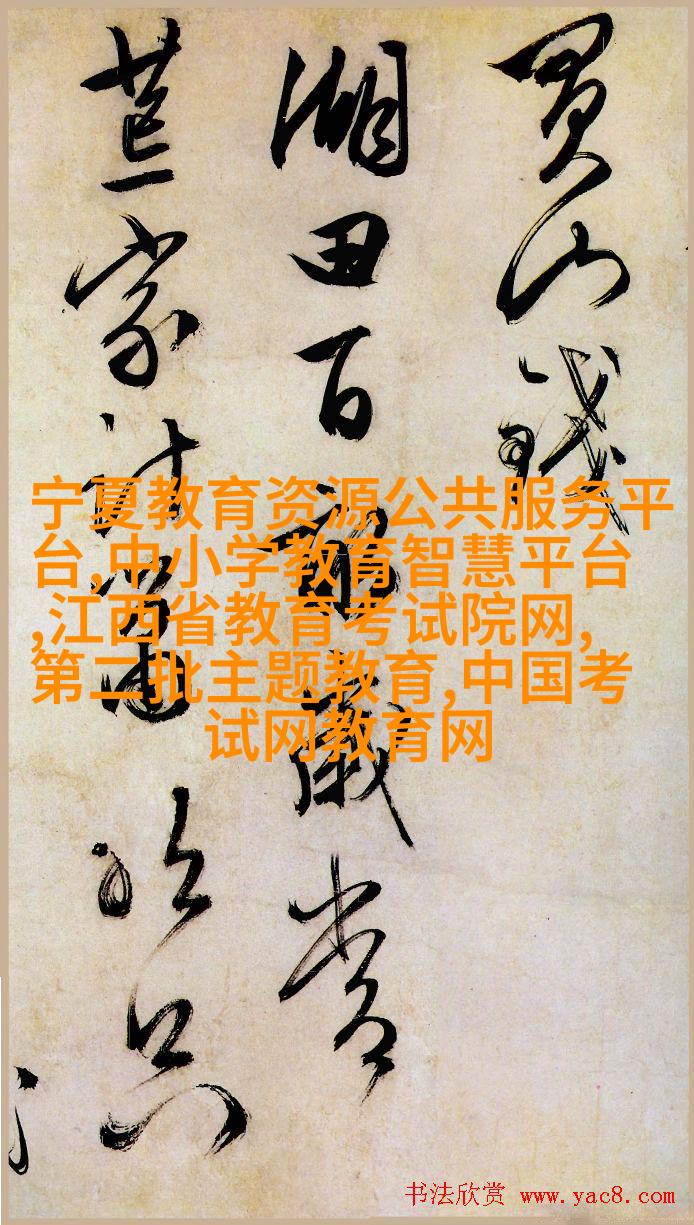 買山錢
湖田百畝歲常
荒家計只
宁夏教育资源公共服务平
台,中小学教育智慧平台
,江西省教育考试院网,
第二批主题教育,中国考
试网教育网
书法欣赏 www.yac8.com